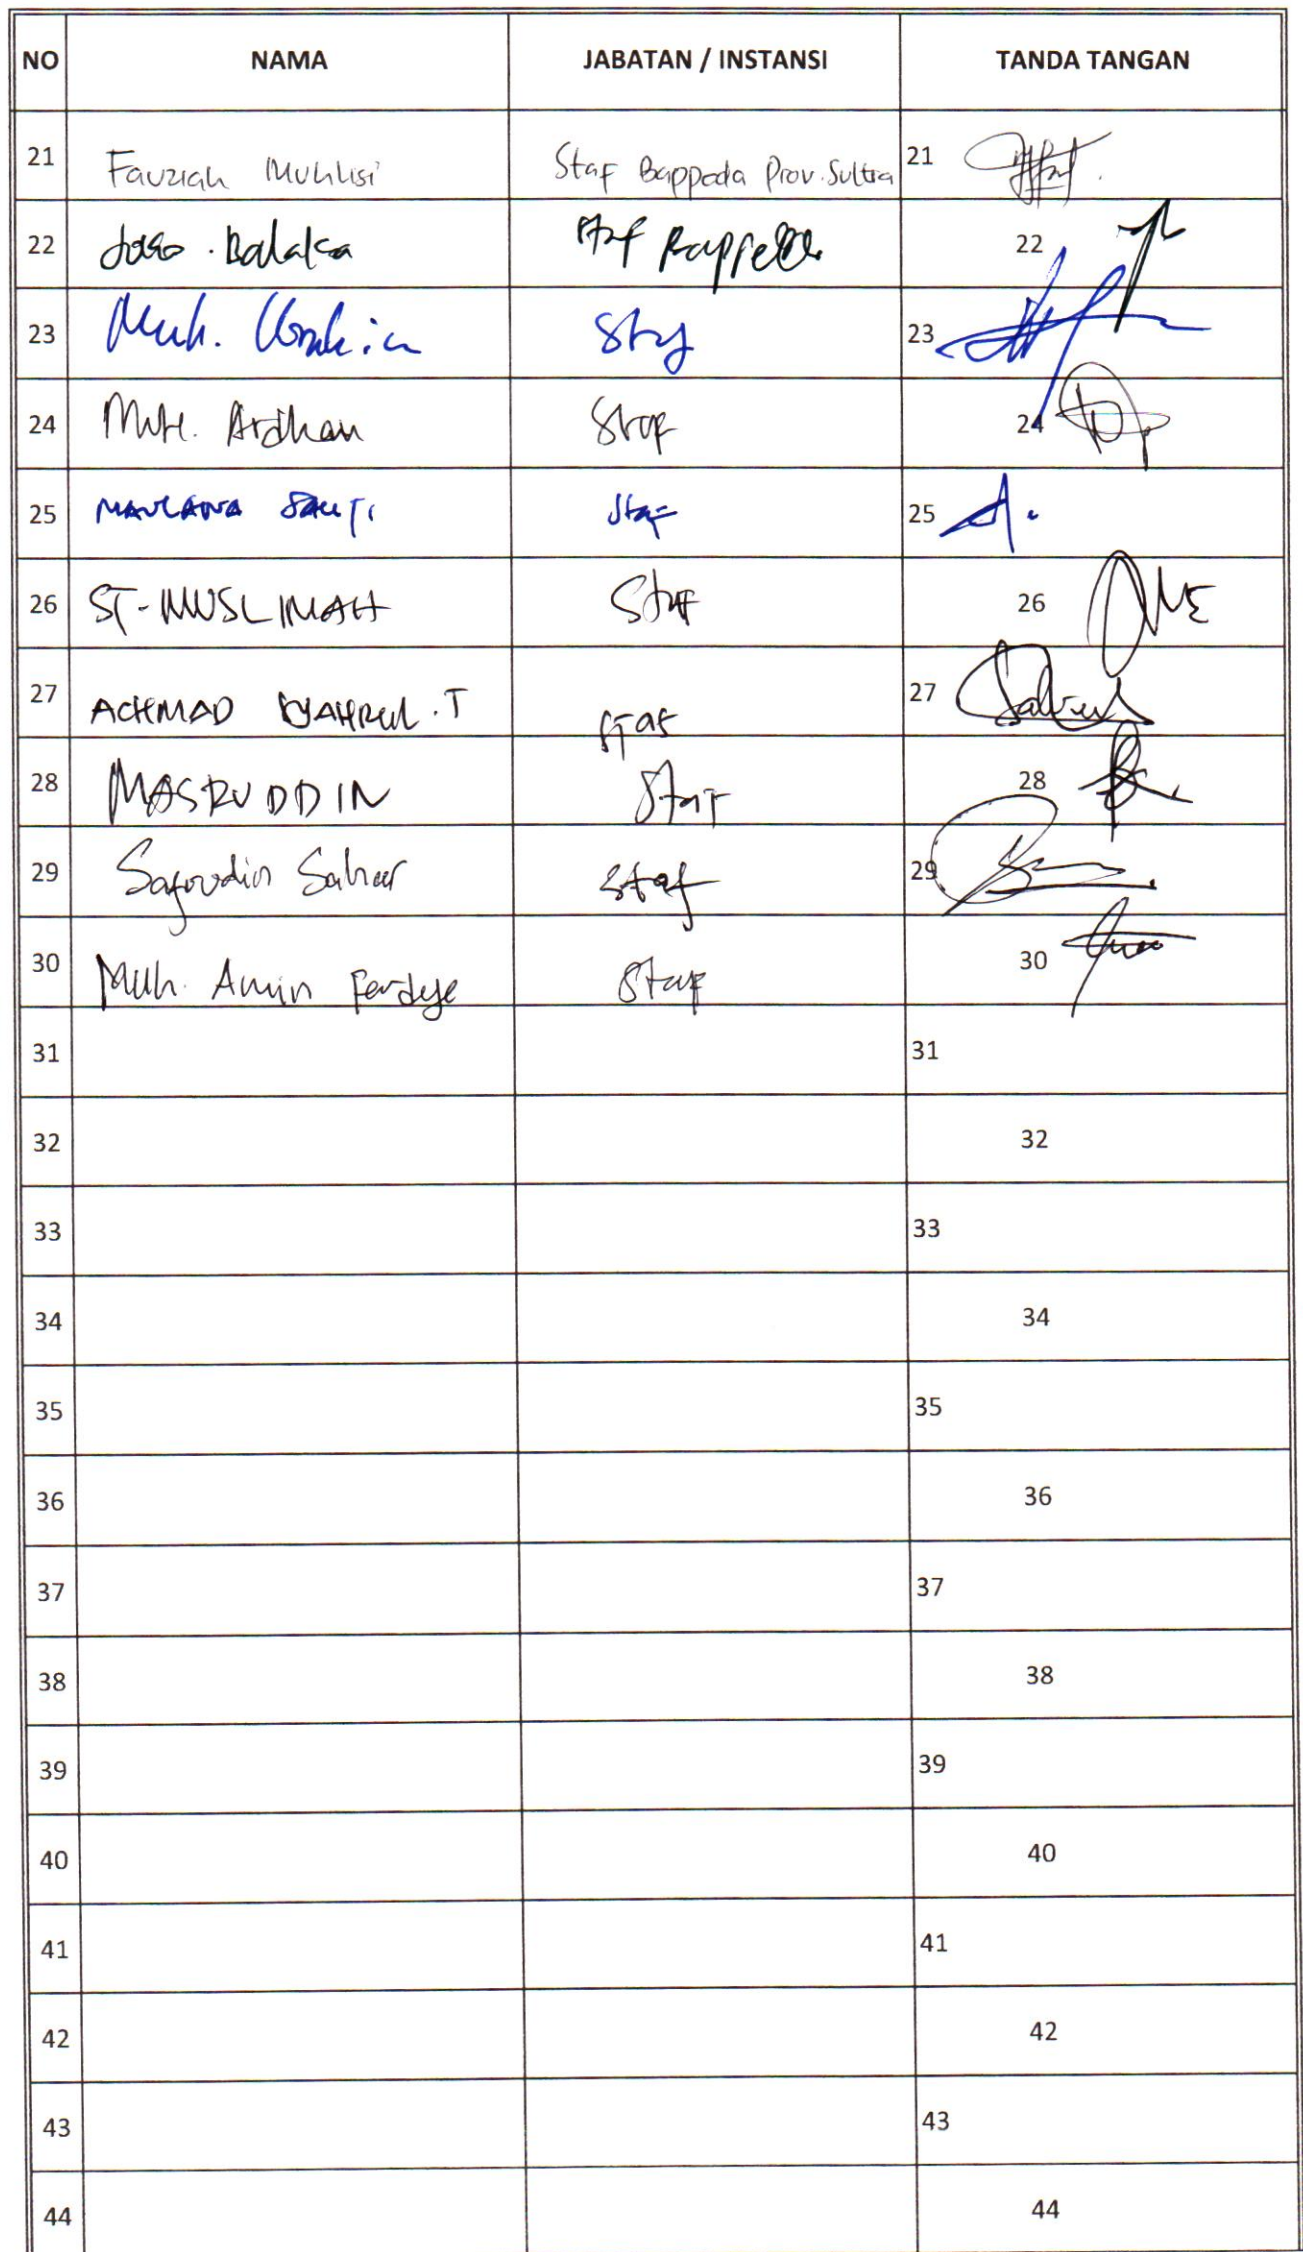 NO NAMA JABATAN / INSTANSI TANDA TANGAN
21 Fauziah Muhlisi Staf Bappeda Prov. Sultra 21
22 Balaka Staf 22
23 Muh. Staf 23
24 Muh. Ardhan Staf 24
25 MAULANA Staf 25
26 ST-MUSLIMAH Staf 26
27 ACHMAD SYAHRUL.T Staf 27
28 MASRUDDIN Staf 28
29 Safrudin Sahar Staf 29
30 Muh. Amin Staf 30
31 31
32 32
33 33
34 34
35 35
36 36
37 37
38 38
39 39
40 40
41 41
42 42
43 43
44 44